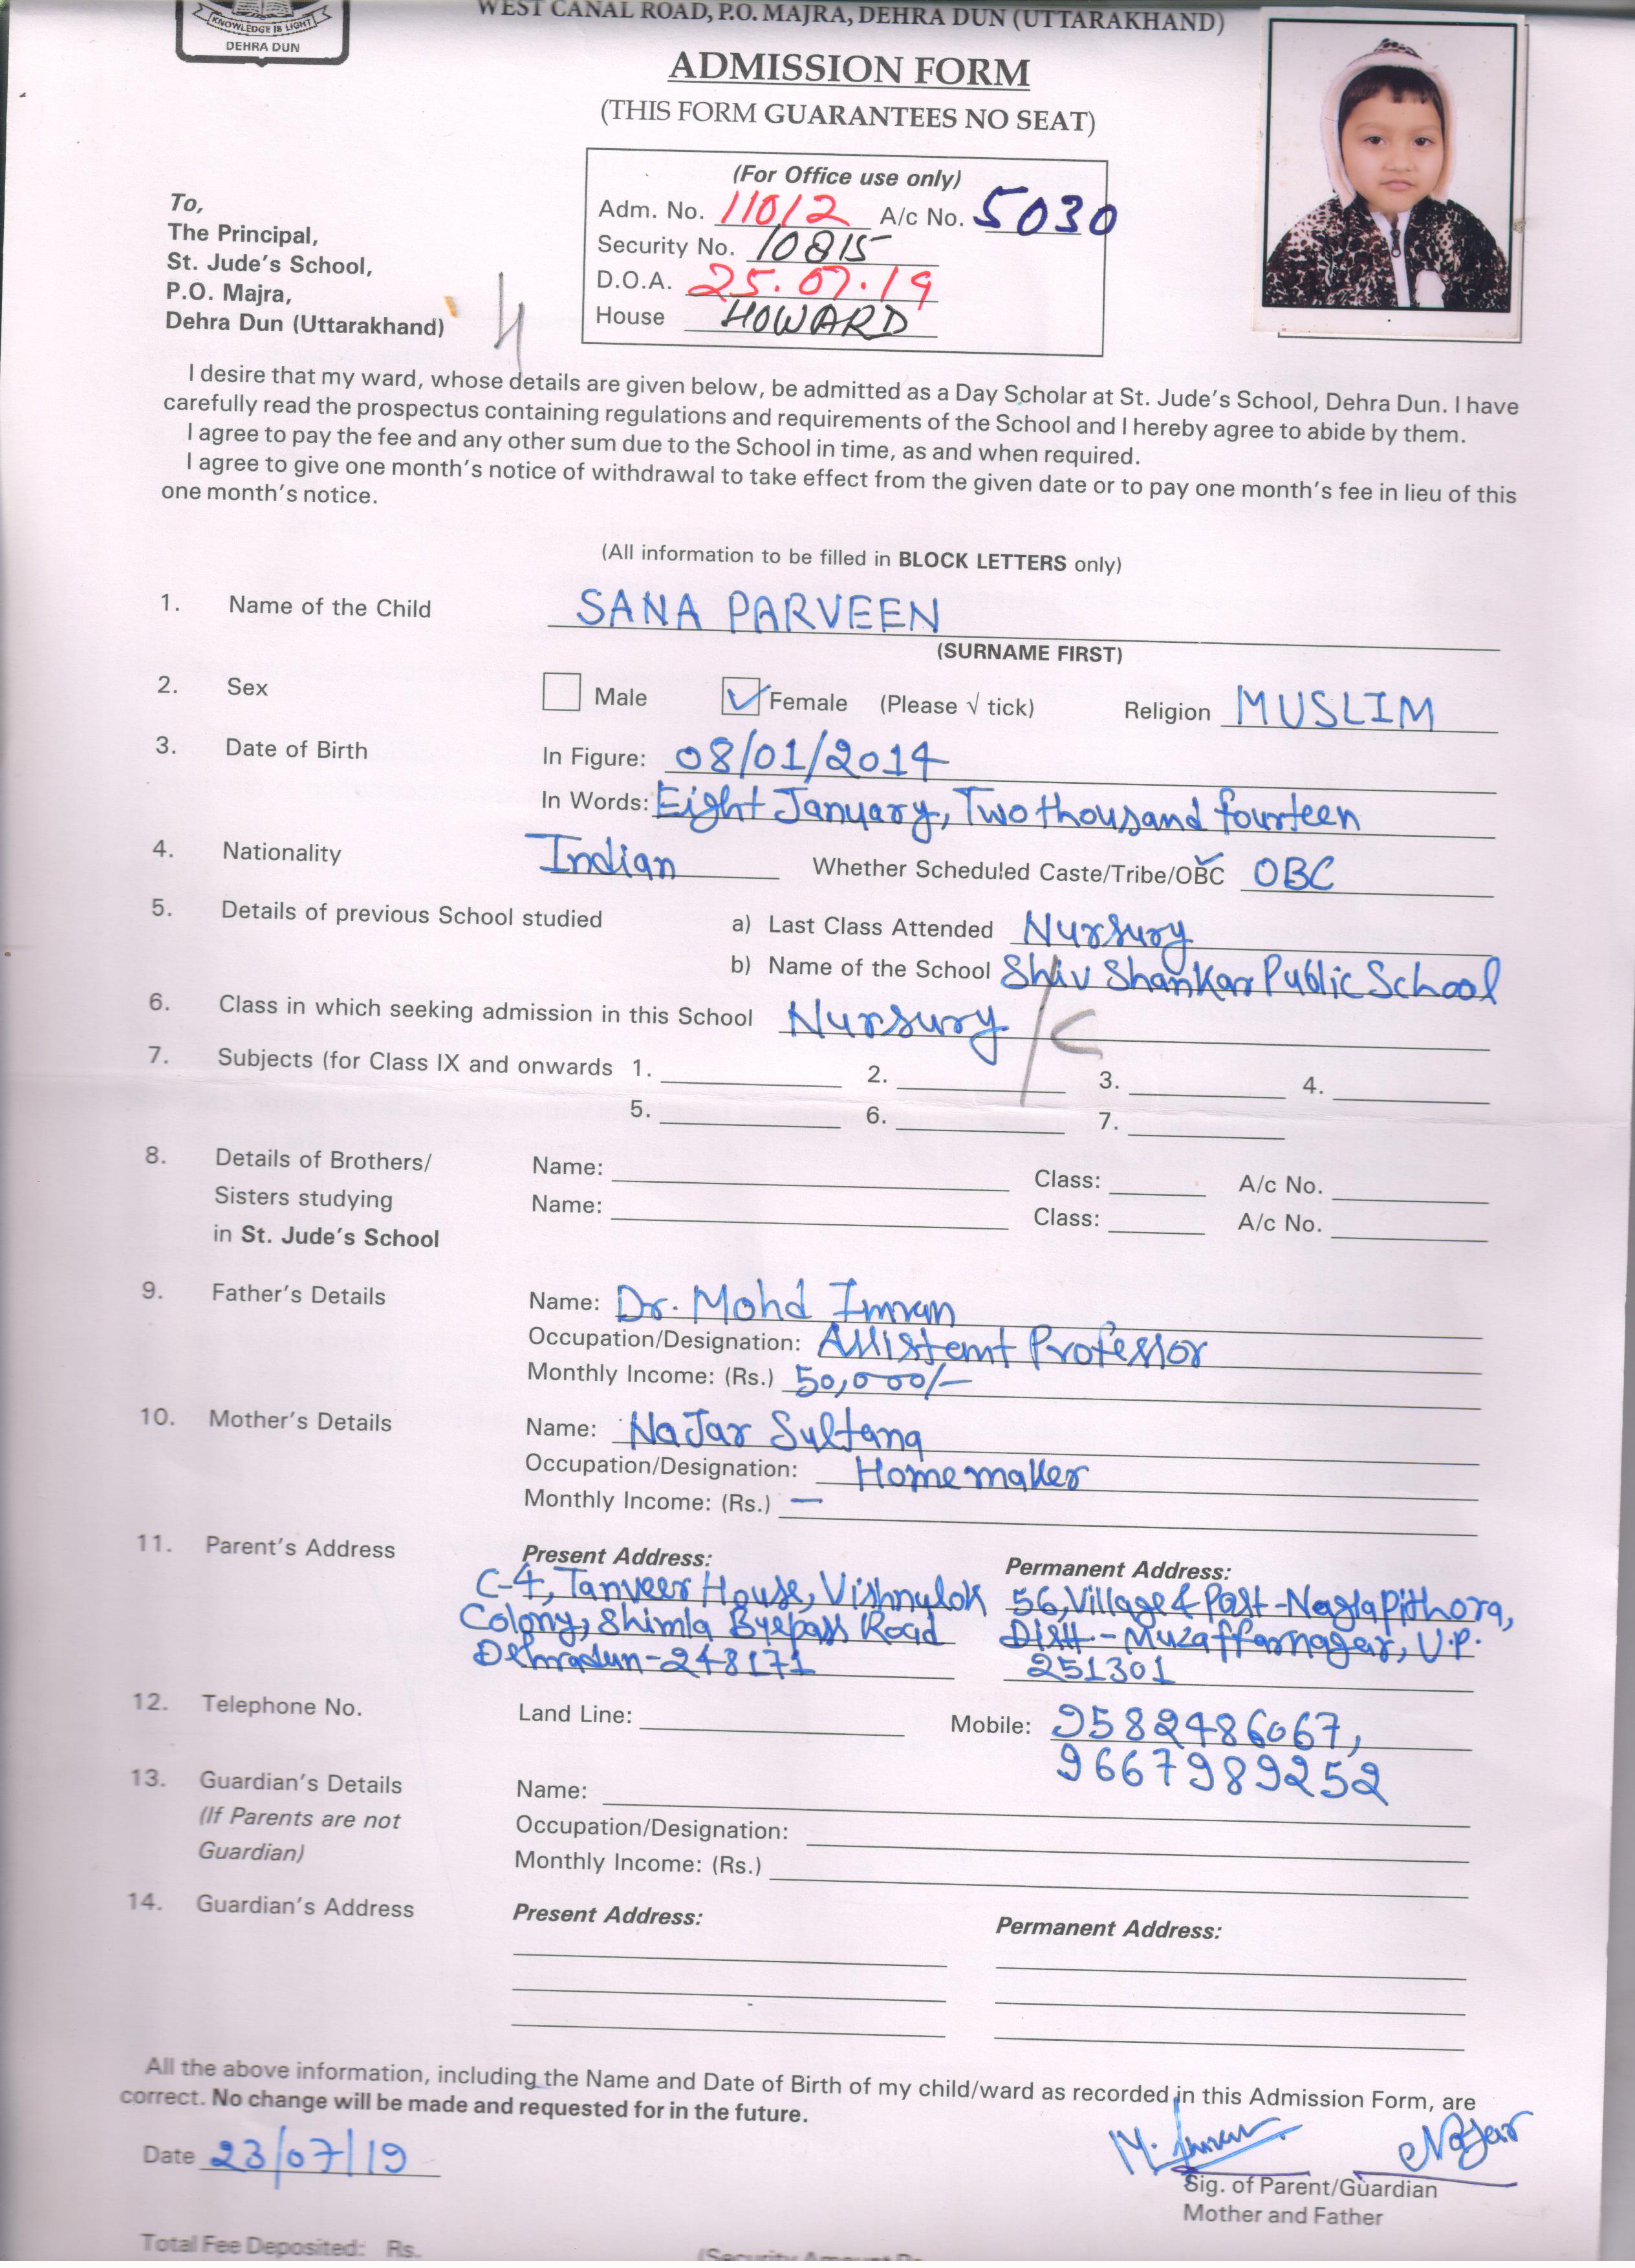 KNOWLEDGE IS LIGHT
DEHRA DUN
WEST CANAL ROAD, P.O. MAJRA, DEHRA DUN (UTTARAKHAND)
ADMISSION FORM
(THIS FORM GUARANTEES NO SEAT)
(For Office use only)
Adm. No. 11012 A/c No. 5030
Security No. 10815
D.O.A. 25.07.19
House HOWARD
To,
The Principal,
St. Jude's School,
P.O. Majra,
Dehra Dun (Uttarakhand)
I desire that my ward, whose details are given below, be admitted as a Day Scholar at St. Jude's School, Dehra Dun. I have
carefully read the prospectus containing regulations and requirements of the School and I hereby agree to abide by them.
I agree to pay the fee and any other sum due to the School in time, as and when required.
I agree to give one month's notice of withdrawal to take effect from the given date or to pay one month's fee in lieu of this
one month's notice.
(All information to be filled in BLOCK LETTERS only)
1. Name of the Child SANA PARVEEN
(SURNAME FIRST)
2. Sex Male ✓ Female (Please √ tick) Religion MUSLIM
3. Date of Birth In Figure: 08/01/2014
In Words: Eight January, Two thousand fourteen
4. Nationality Indian Whether Scheduled Caste/Tribe/OBC ✓ OBC
5. Details of previous School studied a) Last Class Attended Nursury
b) Name of the School Shiv Shankar Public School
6. Class in which seeking admission in this School Nursury / C
7. Subjects (for Class IX and onwards 1. 2. 3. 4.
5. 6. 7.
8. Details of Brothers/ Name: Class: A/c No.
Sisters studying Name: Class: A/c No.
in St. Jude's School
9. Father's Details Name: Dr. Mohd Imran
Occupation/Designation: Assistant Professor
Monthly Income: (Rs.) 50,000/-
10. Mother's Details Name: NaJar Sultana
Occupation/Designation: Homemaker
Monthly Income: (Rs.) —
11. Parent's Address Present Address: Permanent Address:
C-4, Tanveer House, Vishnulok 56, Village & Post - Nagla Pithora,
Colony, Shimla Byepass Road Distt - Muzaffarnagar, U.P.
Dehradun-248171 251301
12. Telephone No. Land Line: Mobile: 9582486067,
9667989252
13. Guardian's Details Name:
(If Parents are not Occupation/Designation:
Guardian) Monthly Income: (Rs.)
14. Guardian's Address Present Address: Permanent Address:
All the above information, including the Name and Date of Birth of my child/ward as recorded in this Admission Form, are
correct. No change will be made and requested for in the future.
Date 23/07/19 M. Imran Najar
Sig. of Parent/Guardian
Mother and Father
Total Fee Deposited: Rs.